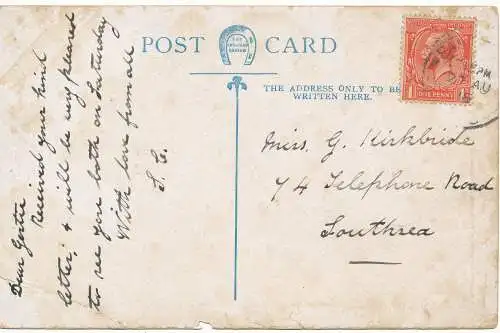 POST CARD
THE ADDRESS ONLY TO BE
WRITTEN HERE.
Dear Gertie
Received your kind
letter, & will be very pleased
to see you both on Saturday
With love from all
Mrs. G. Kirkbride
74 Telephone Road
Southsea
ONE PENNY
PM
AU